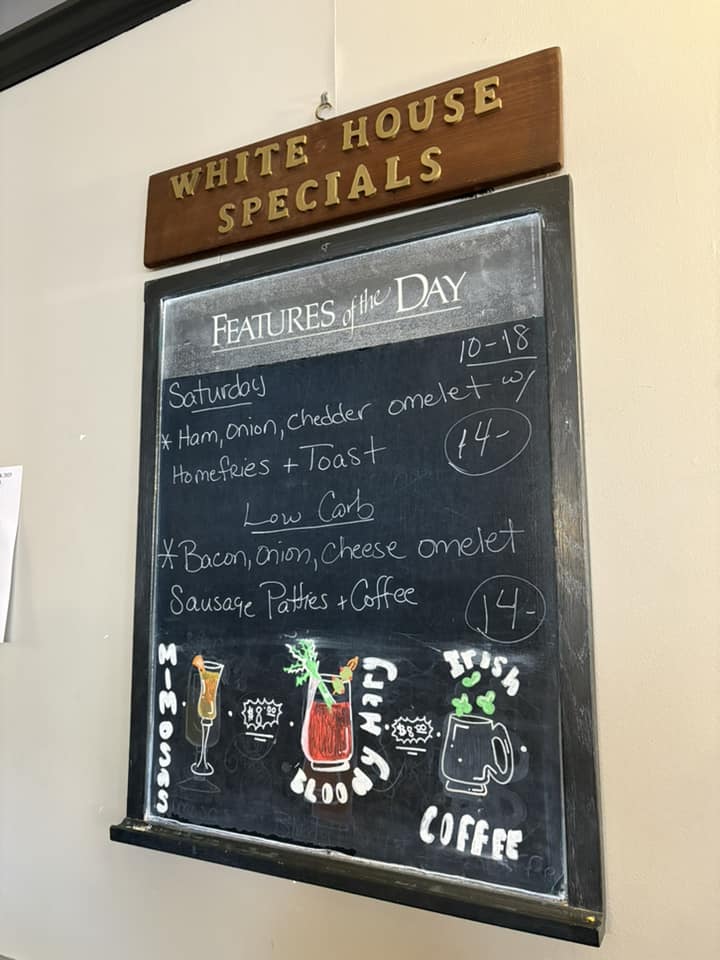 WHITE HOUSE
SPECIALS
FEATURES of the DAY
10-18
Saturday
* Ham, Onion, Chedder omelet w/
Homefries + Toast
14-
Low Carb
* Bacon, Onion, Cheese omelet
Sausage Patties + Coffee
14-
MIMOSAS
$8.00
BLOODY MARY
$8.00
IRISH
COFFEE